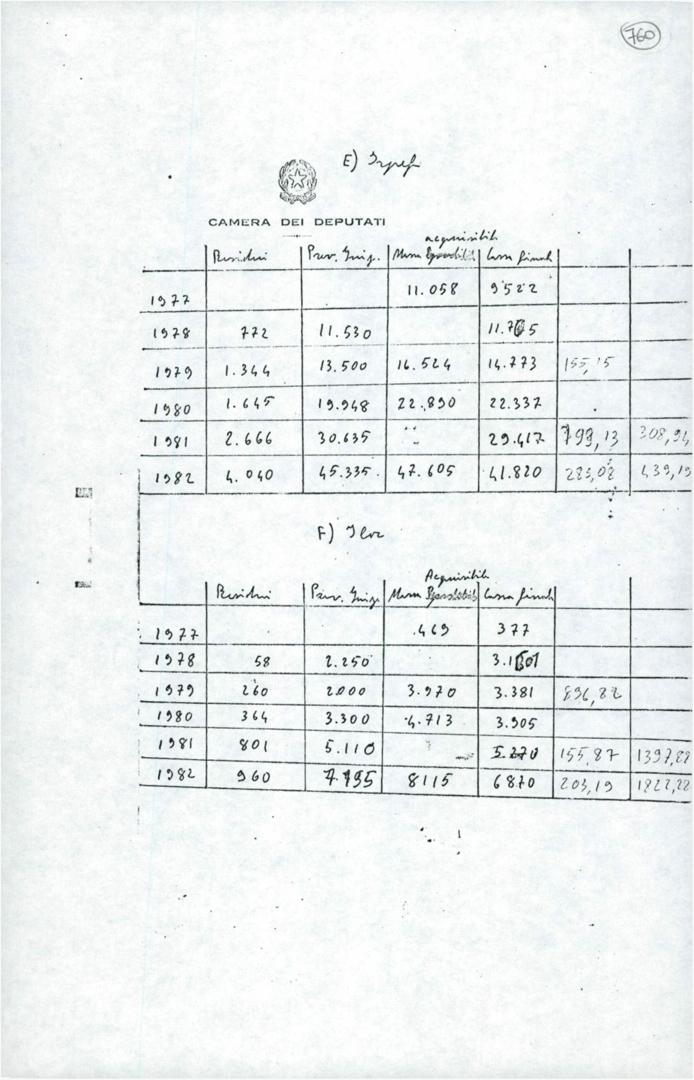 760
E) Irpef
CAMERA DEI DEPUTATI
acquisibili
Residui Prev. Iniz. Massa Spendibile Cassa finale
1977 11.058 9522
1978 772 11.530
1979 1.344 13.500 16.524 14.773 155,15
1980 1.645 19.948 22.890 22.337
1981 2.666 30.635 29.417 199,13 308,94
1982 4.040 45.335 47.605 41.820 283,08 439,19
F) Ilor
Acquisibili
Residui Prev. Iniz. Massa Spendibile Cassa finale
1977 469 377
1978 58 2.250
1979 260 2000 3.970 3.381 896,82
1980 364 3.300 4.713 3.905
1981 801 5.110 5.270 155,87 1397,88
1982 960 7.795 8115 6870 203,19 1822,28